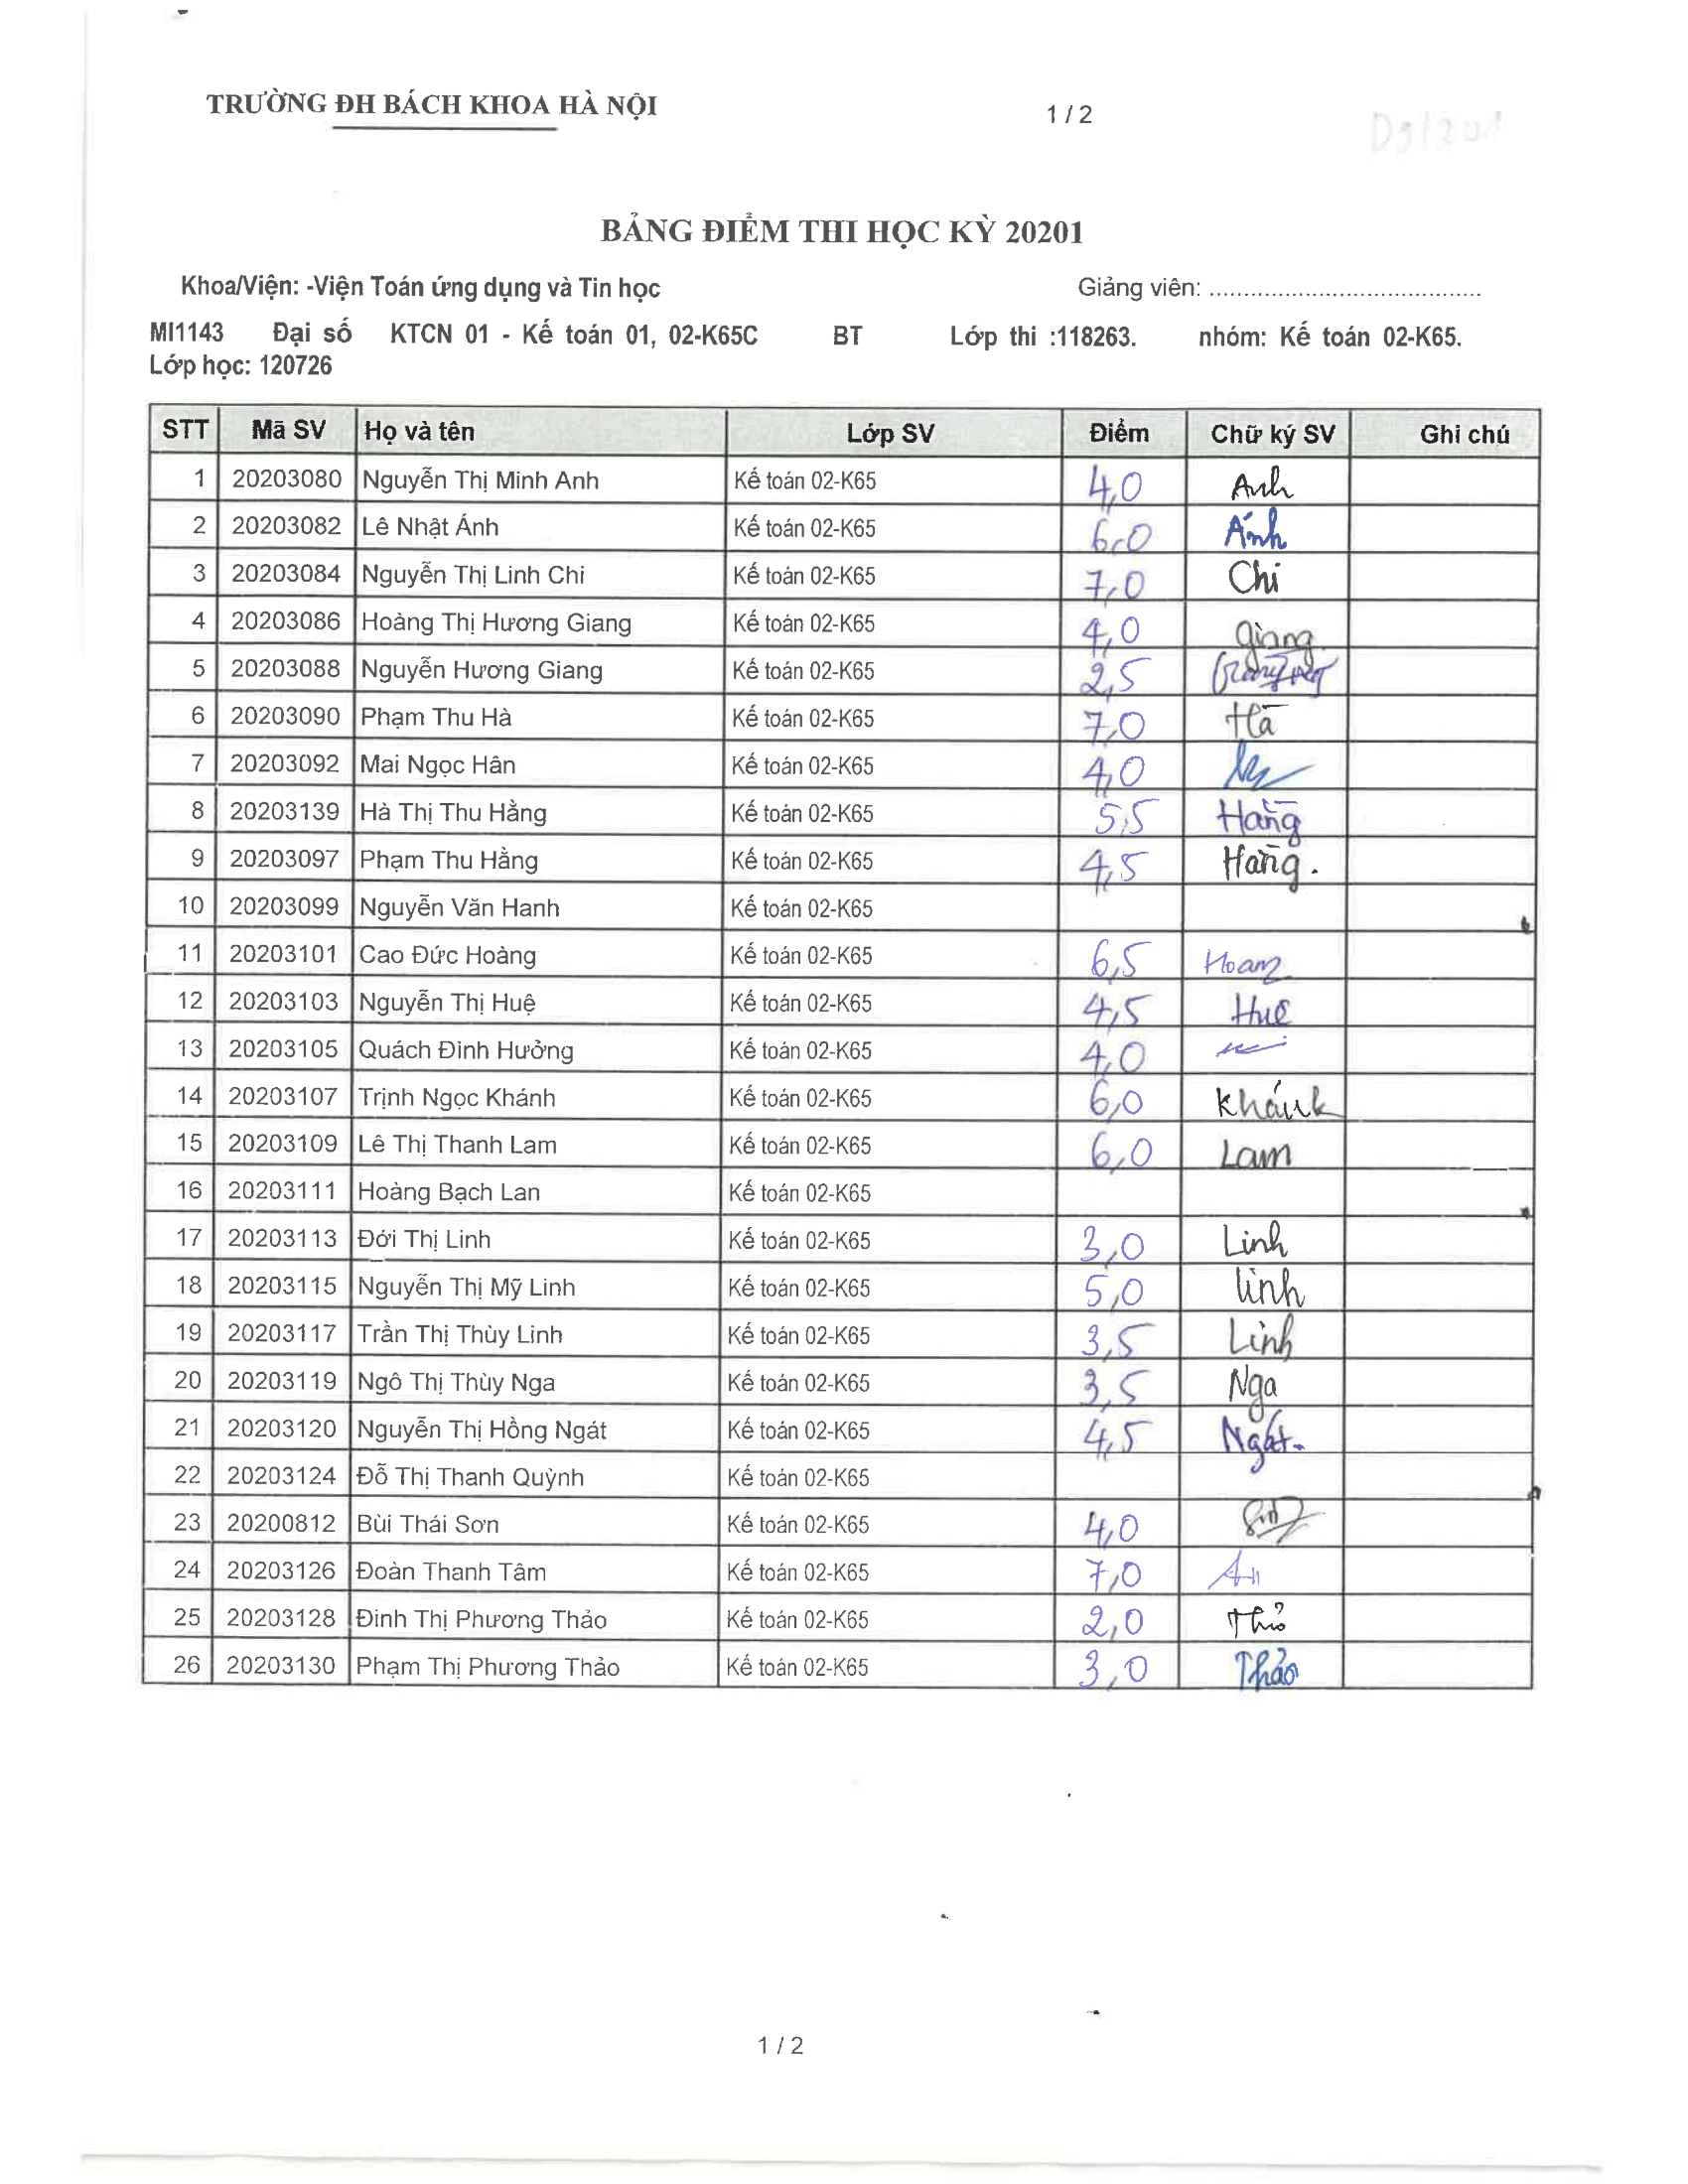 TRƯỜNG ĐH BÁCH KHOA HÀ NỘI 1 / 2
BẢNG ĐIỂM THI HỌC KỲ 20201
Khoa/Viện: -Viện Toán ứng dụng và Tin học Giảng viên: ........................................
MI1143 Đại số KTCN 01 - Kế toán 01, 02-K65C BT Lớp thi :118263. nhóm: Kế toán 02-K65.
Lớp học: 120726
STT Mã SV Họ và tên Lớp SV Điểm Chữ ký SV Ghi chú
1 20203080 Nguyễn Thị Minh Anh Kế toán 02-K65 4,0 Anh
2 20203082 Lê Nhật Ánh Kế toán 02-K65 6,0 Ánh
3 20203084 Nguyễn Thị Linh Chi Kế toán 02-K65 7,0 Chi
4 20203086 Hoàng Thị Hương Giang Kế toán 02-K65 4,0 giang
5 20203088 Nguyễn Hương Giang Kế toán 02-K65 2,5
6 20203090 Phạm Thu Hà Kế toán 02-K65 7,0 Hà
7 20203092 Mai Ngọc Hân Kế toán 02-K65 4,0
8 20203139 Hà Thị Thu Hằng Kế toán 02-K65 5,5 Hằng
9 20203097 Phạm Thu Hằng Kế toán 02-K65 4,5 Hằng.
10 20203099 Nguyễn Văn Hanh Kế toán 02-K65
11 20203101 Cao Đức Hoàng Kế toán 02-K65 6,5 Hoang
12 20203103 Nguyễn Thị Huệ Kế toán 02-K65 4,5 Huê
13 20203105 Quách Đình Hưởng Kế toán 02-K65 4,0
14 20203107 Trịnh Ngọc Khánh Kế toán 02-K65 6,0 Khánh
15 20203109 Lê Thị Thanh Lam Kế toán 02-K65 6,0 Lam
16 20203111 Hoàng Bạch Lan Kế toán 02-K65
17 20203113 Đới Thị Linh Kế toán 02-K65 3,0 Linh
18 20203115 Nguyễn Thị Mỹ Linh Kế toán 02-K65 5,0 linh
19 20203117 Trần Thị Thùy Linh Kế toán 02-K65 3,5 Linh
20 20203119 Ngô Thị Thùy Nga Kế toán 02-K65 3,5 Nga
21 20203120 Nguyễn Thị Hồng Ngát Kế toán 02-K65 4,5 Ngát
22 20203124 Đỗ Thị Thanh Quỳnh Kế toán 02-K65
23 20200812 Bùi Thái Sơn Kế toán 02-K65 4,0
24 20203126 Đoàn Thanh Tâm Kế toán 02-K65 7,0
25 20203128 Đinh Thị Phương Thảo Kế toán 02-K65 2,0
26 20203130 Phạm Thị Phương Thảo Kế toán 02-K65 3,0 Thảo
1 / 2